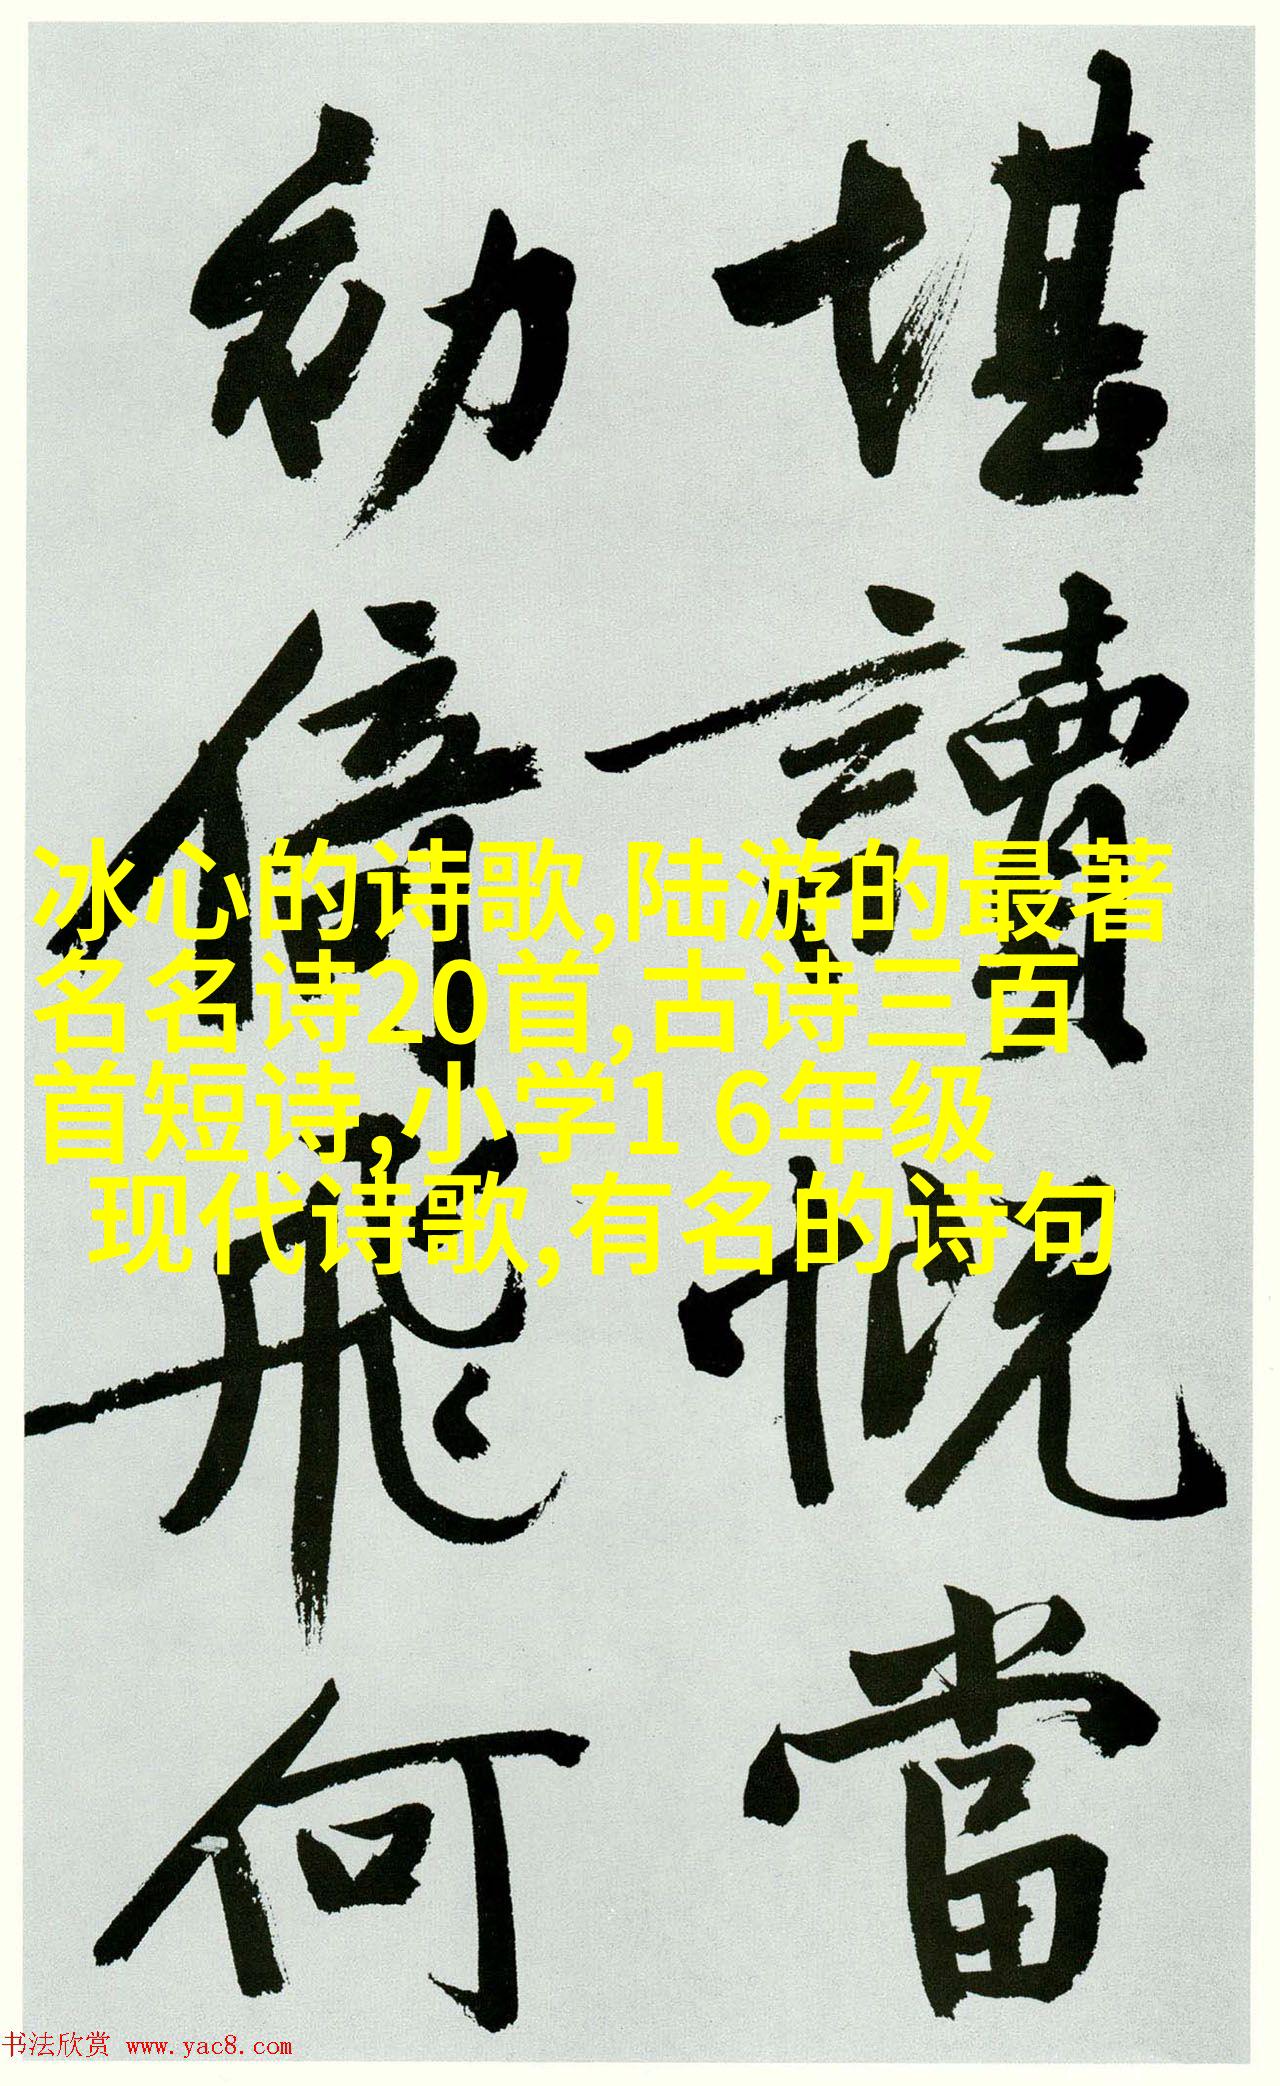 堪讀慨當
初倚飛何
冰心的诗歌,陆游的最著
名名诗20首,古诗三百
首短诗,小学1 6年级
现代诗歌,有名的诗句
书法欣赏 www.yac8.com